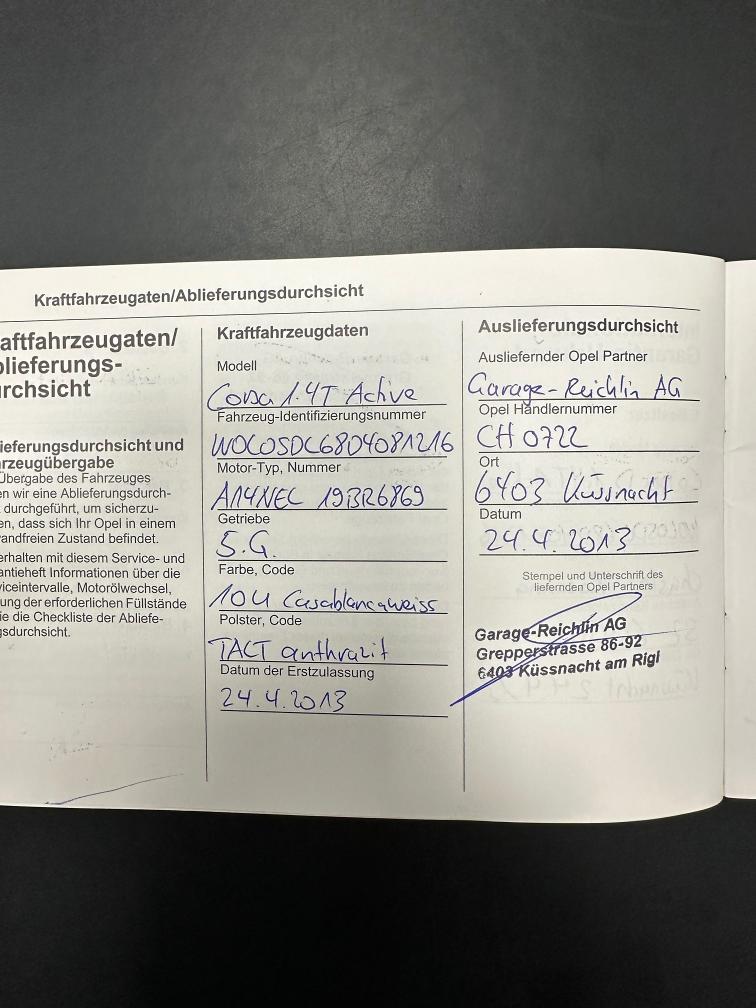 Kraftfahrzeugaten/Ablieferungsdurchsicht
aftfahrzeugaten/
blieferungs-
urchsicht
ieferungsdurchsicht und
rzeugübergabe
Übergabe des Fahrzeuges
en wir eine Ablieferungsdurch-
durchgeführt, um sicherzu-
en, dass sich Ihr Opel in einem
vandfreien Zustand befindet.
erhalten mit diesem Service- und
antieheft Informationen über die
viceintervalle, Motorölwechsel,
ung der erforderlichen Füllstände
ie die Checkliste der Abliefe-
gsdurchsicht.
Kraftfahrzeugdaten
Modell
Corsa 1.4T Active
Fahrzeug-Identifizierungsnummer
WOLOSDL68D4081216
Motor-Typ, Nummer
A14NEL 19BR6869
Getriebe
5.G.
Farbe, Code
10U Casablancaweiss
Polster, Code
TACT anthrazit
Datum der Erstzulassung
24.4.2013
Auslieferungsdurchsicht
Ausliefernder Opel Partner
Garage-Reichlin AG
Opel Händlernummer
CH 0722
Ort
6403 Küssnacht
Datum
24.4.2013
Stempel und Unterschrift des
liefernden Opel Partners
Garage-Reichlin AG
Grepperstrasse 86-92
6403 Küssnacht am Rigi